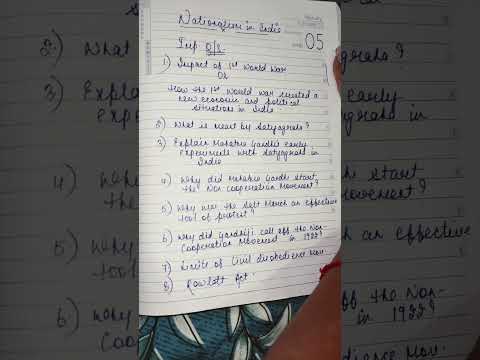 Nationalism in India
05
Imp Q/S
1) Impact of 1st World War
OR
How the 1st World War created a
new economic and political
situation in India.
2) What is meant by Satyagraha?
3) Explain Mahatma Gandhi early
experiments with Satyagraha in
India
4) Why did Mahatma Gandhi start
the Non cooperation Movement?
5) Why was the Salt March an effective
tool of protest?
6) Why did Gandhiji call off the Non-
Cooperation Movement in 1922?
7) Limits of Civil disobedience Mov.
8) Rowlatt Act.